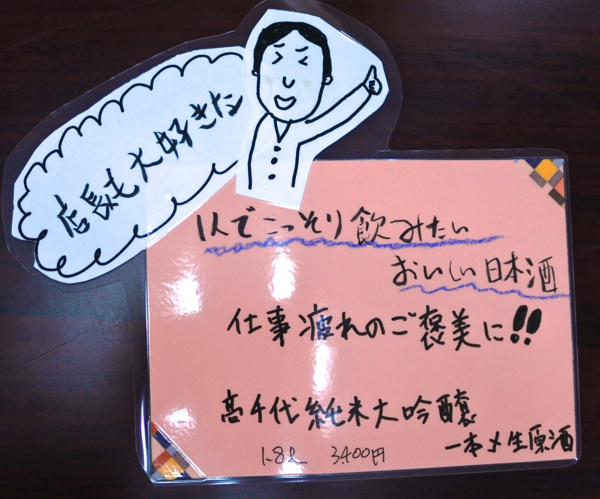 店長も大好きな
1人でこっそり飲みたい
おいしい日本酒
仕事疲れのご褒美に!!
高千代純米大吟醸
一本〆生原酒
1.8ℓ 3,400円